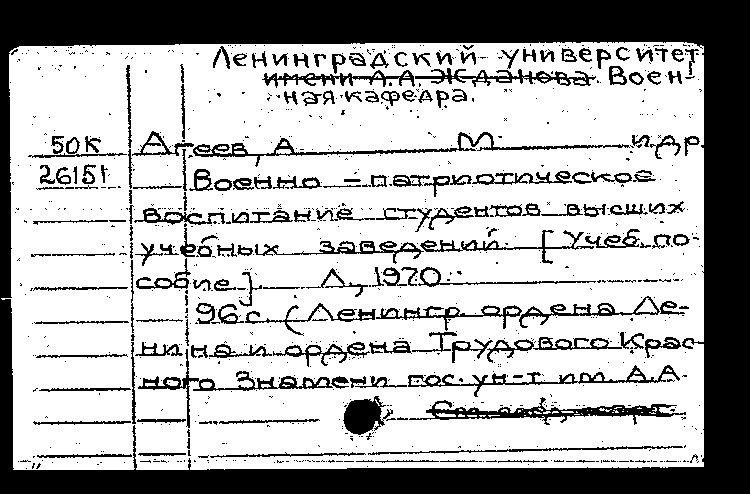 Ленинградский университет
имени А.А. Жданова. Воен-
ная кафедра.
50К Агеев, А М и др.
26151 Военно-патриотическое
воспитание студентов высших
учебных заведений. [Учеб. по-
собие]. Л., 1970.
96 с. (Ленингр. ордена Ле-
нина и ордена Трудового Крас-
ного Знамени гос. ун-т им. А.А.
См. след. карт.